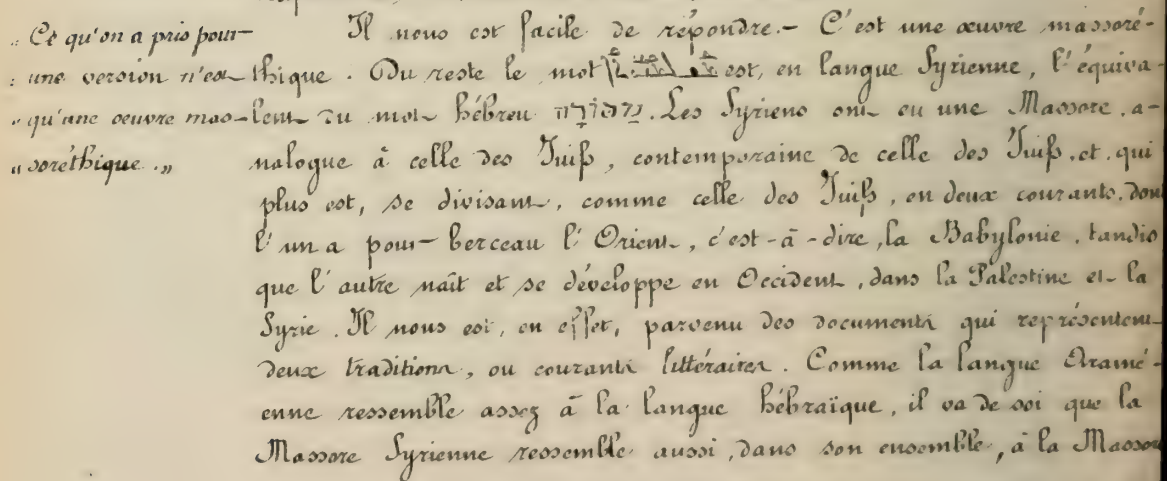 „ Ce qu'on a pris pour
„ une version n'est
„ qu'une oeuvre mas-
„ soréthique.„
Il nous est facile de répondre.- C'est une œuvre massoré-
thique. Du reste le mot est, en langue Syrienne, l'équiva-
lent du mot hébreu. Les Syriens ont eu une Massore, a-
nalogue à celle des Juifs, contemporaine de celle des Juifs, et, qui
plus est, se divisant, comme celle des Juifs, en deux courants, don
l'un a pour berceau l'Orient, c'est-à-dire, la Babylonie, tandis
que l'autre naît et se développe en Occident, dans la Palestine et la
Syrie. Il nous est, en effet, parvenu des documents qui représentent
deux traditions, ou courants littéraires. Comme la langue Aramé-
enne ressemble assez à la langue hébraïque, il va de soi que la
Massore Syrienne ressemble aussi, dans son ensemble, à la Massor